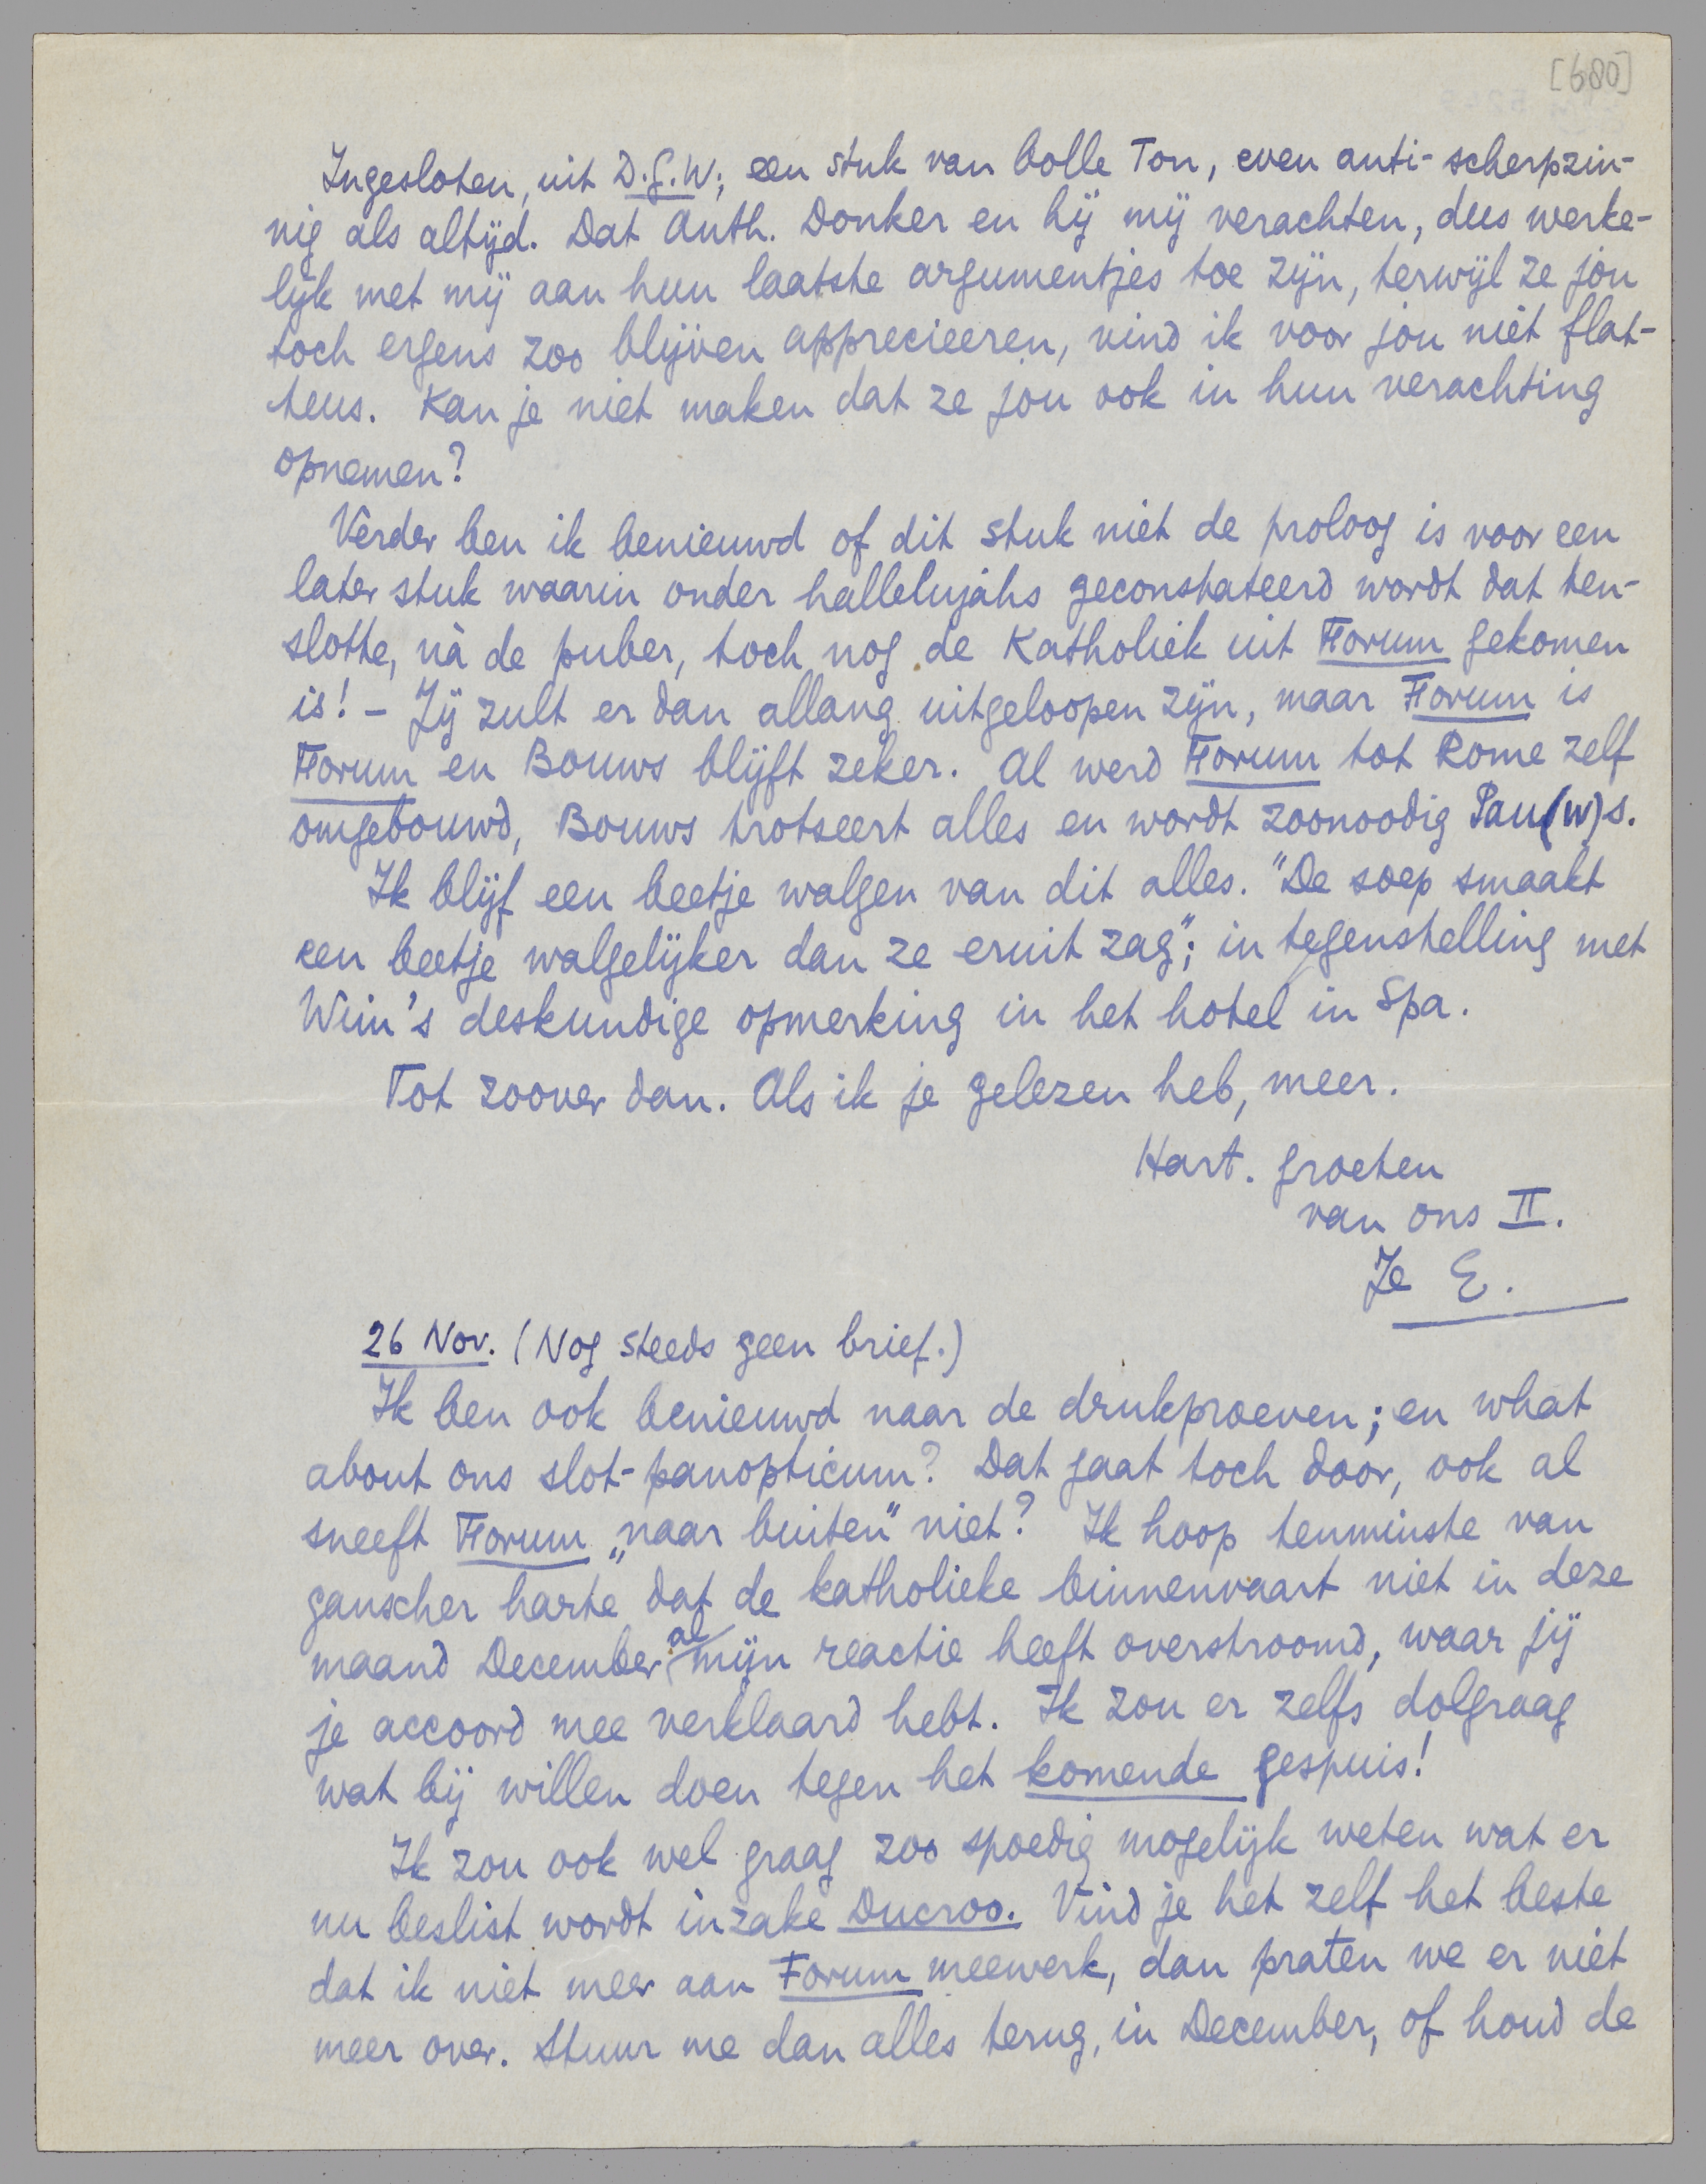 [680]
Ingesloten, uit D.G.W.; een stuk van bolle Ton, even anti-scherpzin-
nig als altijd. Dat Anth. Donker en hij mij verachten, dus werke-
lijk met mij aan hun laatste argumentjes toe zijn, terwijl ze jou
toch ergens zoo blijven apprecieeren, vind ik voor jou niet flat-
teus. Kan je niet maken dat ze jou ook in hun verachting
opnemen?
Verder ben ik benieuwd of dit stuk niet de proloog is voor een
later stuk waarin onder hallelujahs geconstateerd wordt dat ten-
slotte, nà de puber, toch nog de Katholiek uit Forum gekomen
is! – Jij zult er dan allang uitgeloopen zijn, maar Forum is
Forum en Bouws blijft zeker. Al werd Forum tot Rome zelf
omgebouwd, Bouws trotseert alles en wordt zoonoodig Pau(w)s.
Ik blijf een beetje walgen van dit alles. "De soep smaakt
een beetje walgelijker dan ze eruit zag"; in tegenstelling met
Wim's deskundige opmerking in het hotel in Spa.
Tot zoover dan. Als ik je gelezen heb, meer.
Hart. groeten
van ons II.
Je E.
26 Nov. (Nog steeds geen brief.)
Ik ben ook benieuwd naar de drukproeven; en what
about ons slot-panopticum? Dat gaat toch door, ook al
sneeft Forum „naar buiten" niet? Ik hoop tenminste van
ganscher harte dat de katholieke binnenvaart niet in deze
maand December al mijn reactie heeft overstroomd, waar jij
je accoord mee verklaard hebt. Ik zou er zelfs dolgraag
wat bij willen doen tegen het komende gespuis!
Ik zou ook wel graag zoo spoedig mogelijk weten wat er
nu beslist wordt inzake Ducroo. Vind je het zelf het beste
dat ik niet meer aan Forum meewerk, dan praten we er niet
meer over. Stuur me dan alles terug, in December, of houd de